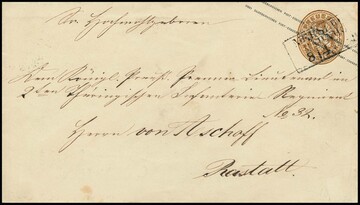 Sr. Hochwohlgeboren
dem Königl. Preuß. Premier Lieutenant im
2ten Thüringischen Infanterie Regiment
No. 32.
Herrn von Aschoff
Rastatt.